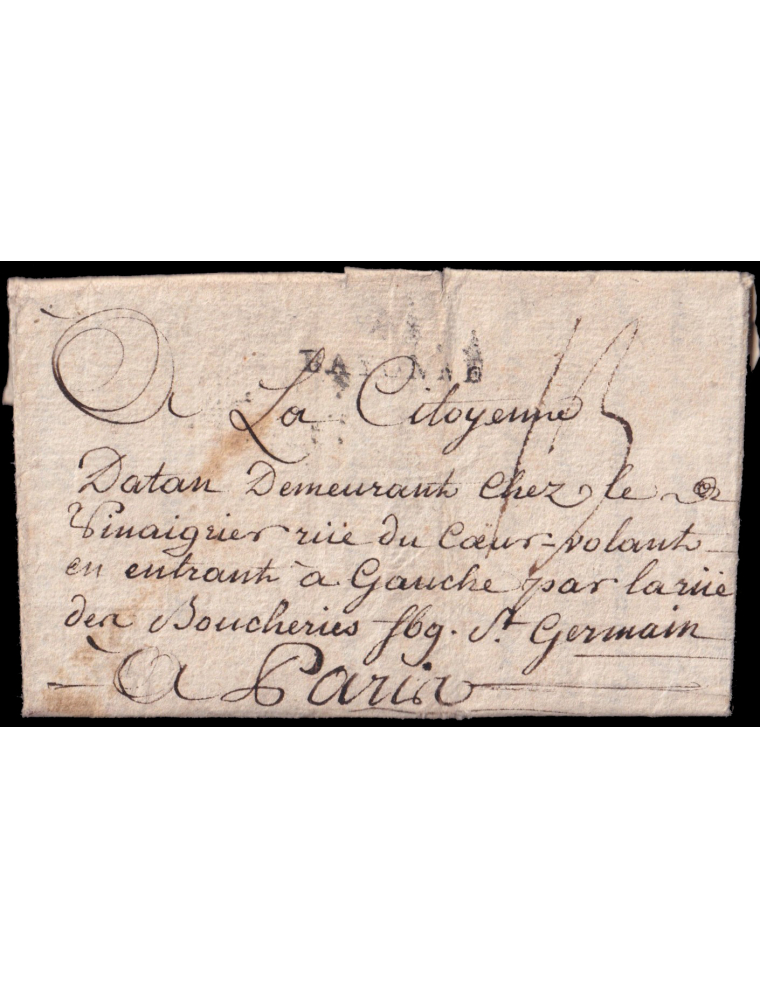 BAYONNE
A La Citoyenne
13
Datan Demeurant chez le
Vinaigrier rüe du Cœur-volant
en entrant à Gauche par la rüe
des Boucheries fbg. St. Germain
A Paris